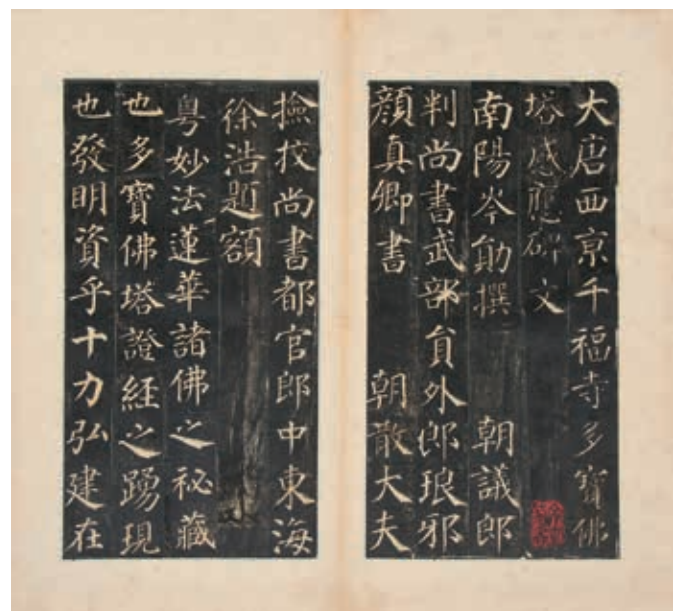 大唐西京千福寺多寶佛
塔感應碑文
南陽岑勛撰 朝議郎
判尚書武部員外郎琅邪
顏真卿書 朝散大夫
撿校尚書都官郎中東海
徐浩題額
粵妙法蓮華諸佛之祕藏
也多寶佛塔證經之踴現
也發明資乎十力弘建在